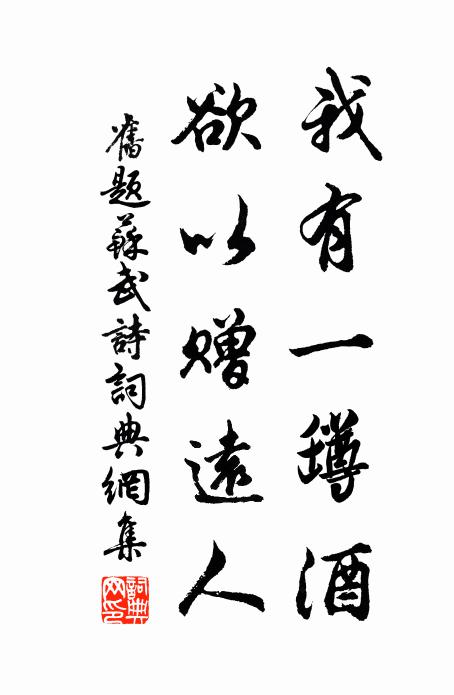 我有一罇酒
欲以贈遠人
舊題蘇武詩詞典網集
詞典網印